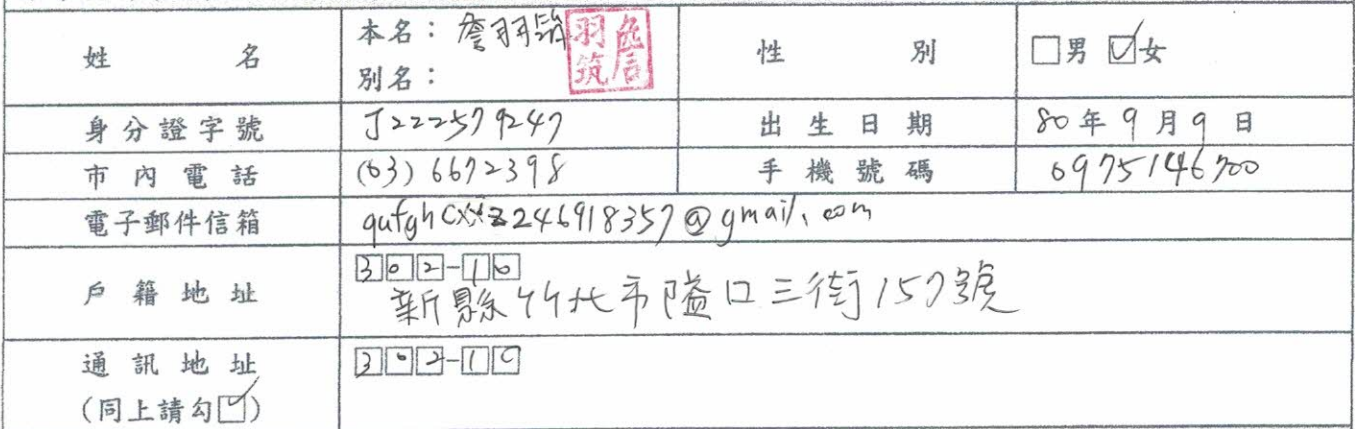 姓名 本名：詹羽筑 羽筑詹 性別 □男 ☑女
別名：
身分證字號 J222579247 出生日期 80年9月9日
市內電話 (03) 6672398 手機號碼 0975146700
電子郵件信箱 qufghcxyz246918357@gmail.com
戶籍地址 302-10
新縣竹北市隘口三街157號
通訊地址 302-10
(同上請勾☑)